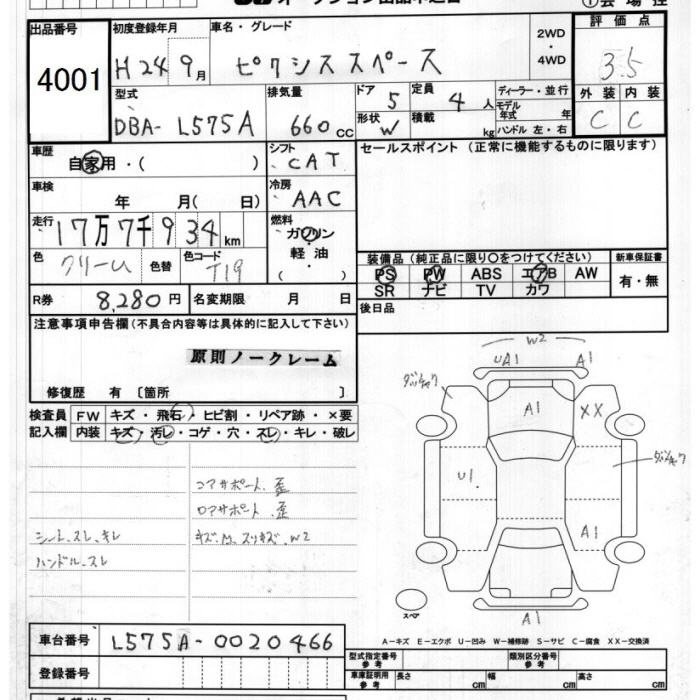 出品番号 4001
初度登録年月 H 24 9月
車名・グレード ピクシススペース
2WD・4WD
評価点 3.5
型式 DBA-L575A
排気量 660cc
ドア 5
形状 W
定員 4人
積載 kg
ディーラー・並行
モデル年式 年
ハンドル 左・右
外装 内装
C C
車歴 自家用・( )
シフト CAT
セールスポイント (正常に機能するものに限ります)
車検 年 月( 日)
冷房 AAC
走行 17万7千934km
燃料 ガソリン
軽油
( )
色 クリーム 色替 色コード T19
装備品 (純正品に限り○をつけてください) 新車保証書
PS PW ABS エアB AW 有・無
SR ナビ TV カワ
R券 8,280円 名変期限 月 日
後日品
注意事項申告欄 (不具合内容等は具体的に記入して下さい)
原則ノークレーム
修復歴 有 [箇所 ]
検査員 FW キズ・飛石・ヒビ割・リペア跡・×要
記入欄 内装 キズ・汚レ・コゲ・穴・スレ・キレ・破レ
コアサポート、歪
ロアサポート、歪
シート、スレ、キレ キズ、M、スリキズ、W2
ハンドル、スレ
W2
UA1 A1
A1 XX
U1
A1
スペア
A1
A-キズ E-エクボ U-凹み W-補修跡 S-サビ C-腐食 XX-交換済
車台番号 L575A-0020466
型式指定番号 参考 類別区分番号 参考
登録番号
車庫証明用 参考 長さ cm 幅 cm 高さ cm